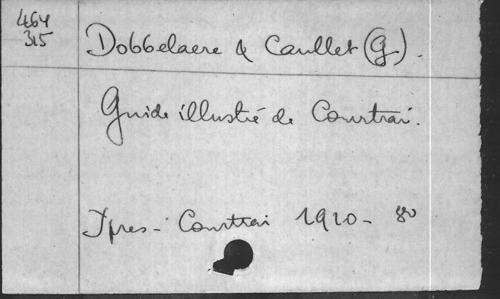 464
315
Dobbelaere & Caullet (G.).
Guide illustré de Courtrai.
Ypres - Courtrai 1910 - 8º